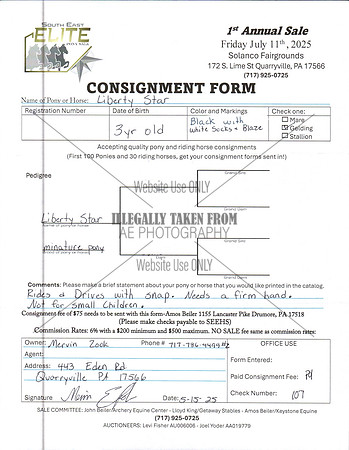 SOUTH EAST
ELITE
PONY SALE
1st Annual Sale
Friday July 11th, 2025
Solanco Fairgrounds
172 S. Lime St Quarryville, PA 17566
(717) 925-0725
CONSIGNMENT FORM
Name of Pony or Horse: Liberty Star
Registration Number
Date of Birth
3 yr old
Color and Markings
Black with
white socks + Blaze
Check one:
Mare
Gelding
Stallion
Accepting quality pony and riding horse consignments
(First 100 Ponies and 30 riding horses, get your consignment forms sent in!)
Pedigree
Website Use ONLY
Liberty Star
ILLEGALLY TAKEN FROM
AE PHOTOGRAPHY
minature pony
Website Use ONLY
Comments: Please make a brief statement about your pony or horse that you would like printed in the catalog.
Rides & Drives with snap. Needs a firm hand.
Not for small children.
Consignment fee of $75 needs to be sent with this form-Amos Beiler 1155 Lancaster Pike Drumore, PA 17518
(Please make checks payable to SEEHS)
Commission Rates: 6% with a $200 minimum and $500 maximum. NO SALE fee same as commission rates:
Owner: Mervin Zook Phone #
Agent:
Address: 443 Eden Rd
Quarryville PA 17566
Signature Date: 5-15-25
OFFICE USE
Form Entered:
Paid Consignment Fee: Pd
Check Number: 107
SALE COMMITTEE: John Beiler/Archery Equine Center - Lloyd King/Getaway Stables - Amos Beiler/Kaystone Equine
(717) 925-0725
AUCTIONEERS: Levi Fisher AU006006 - Joel Yoder AA019779